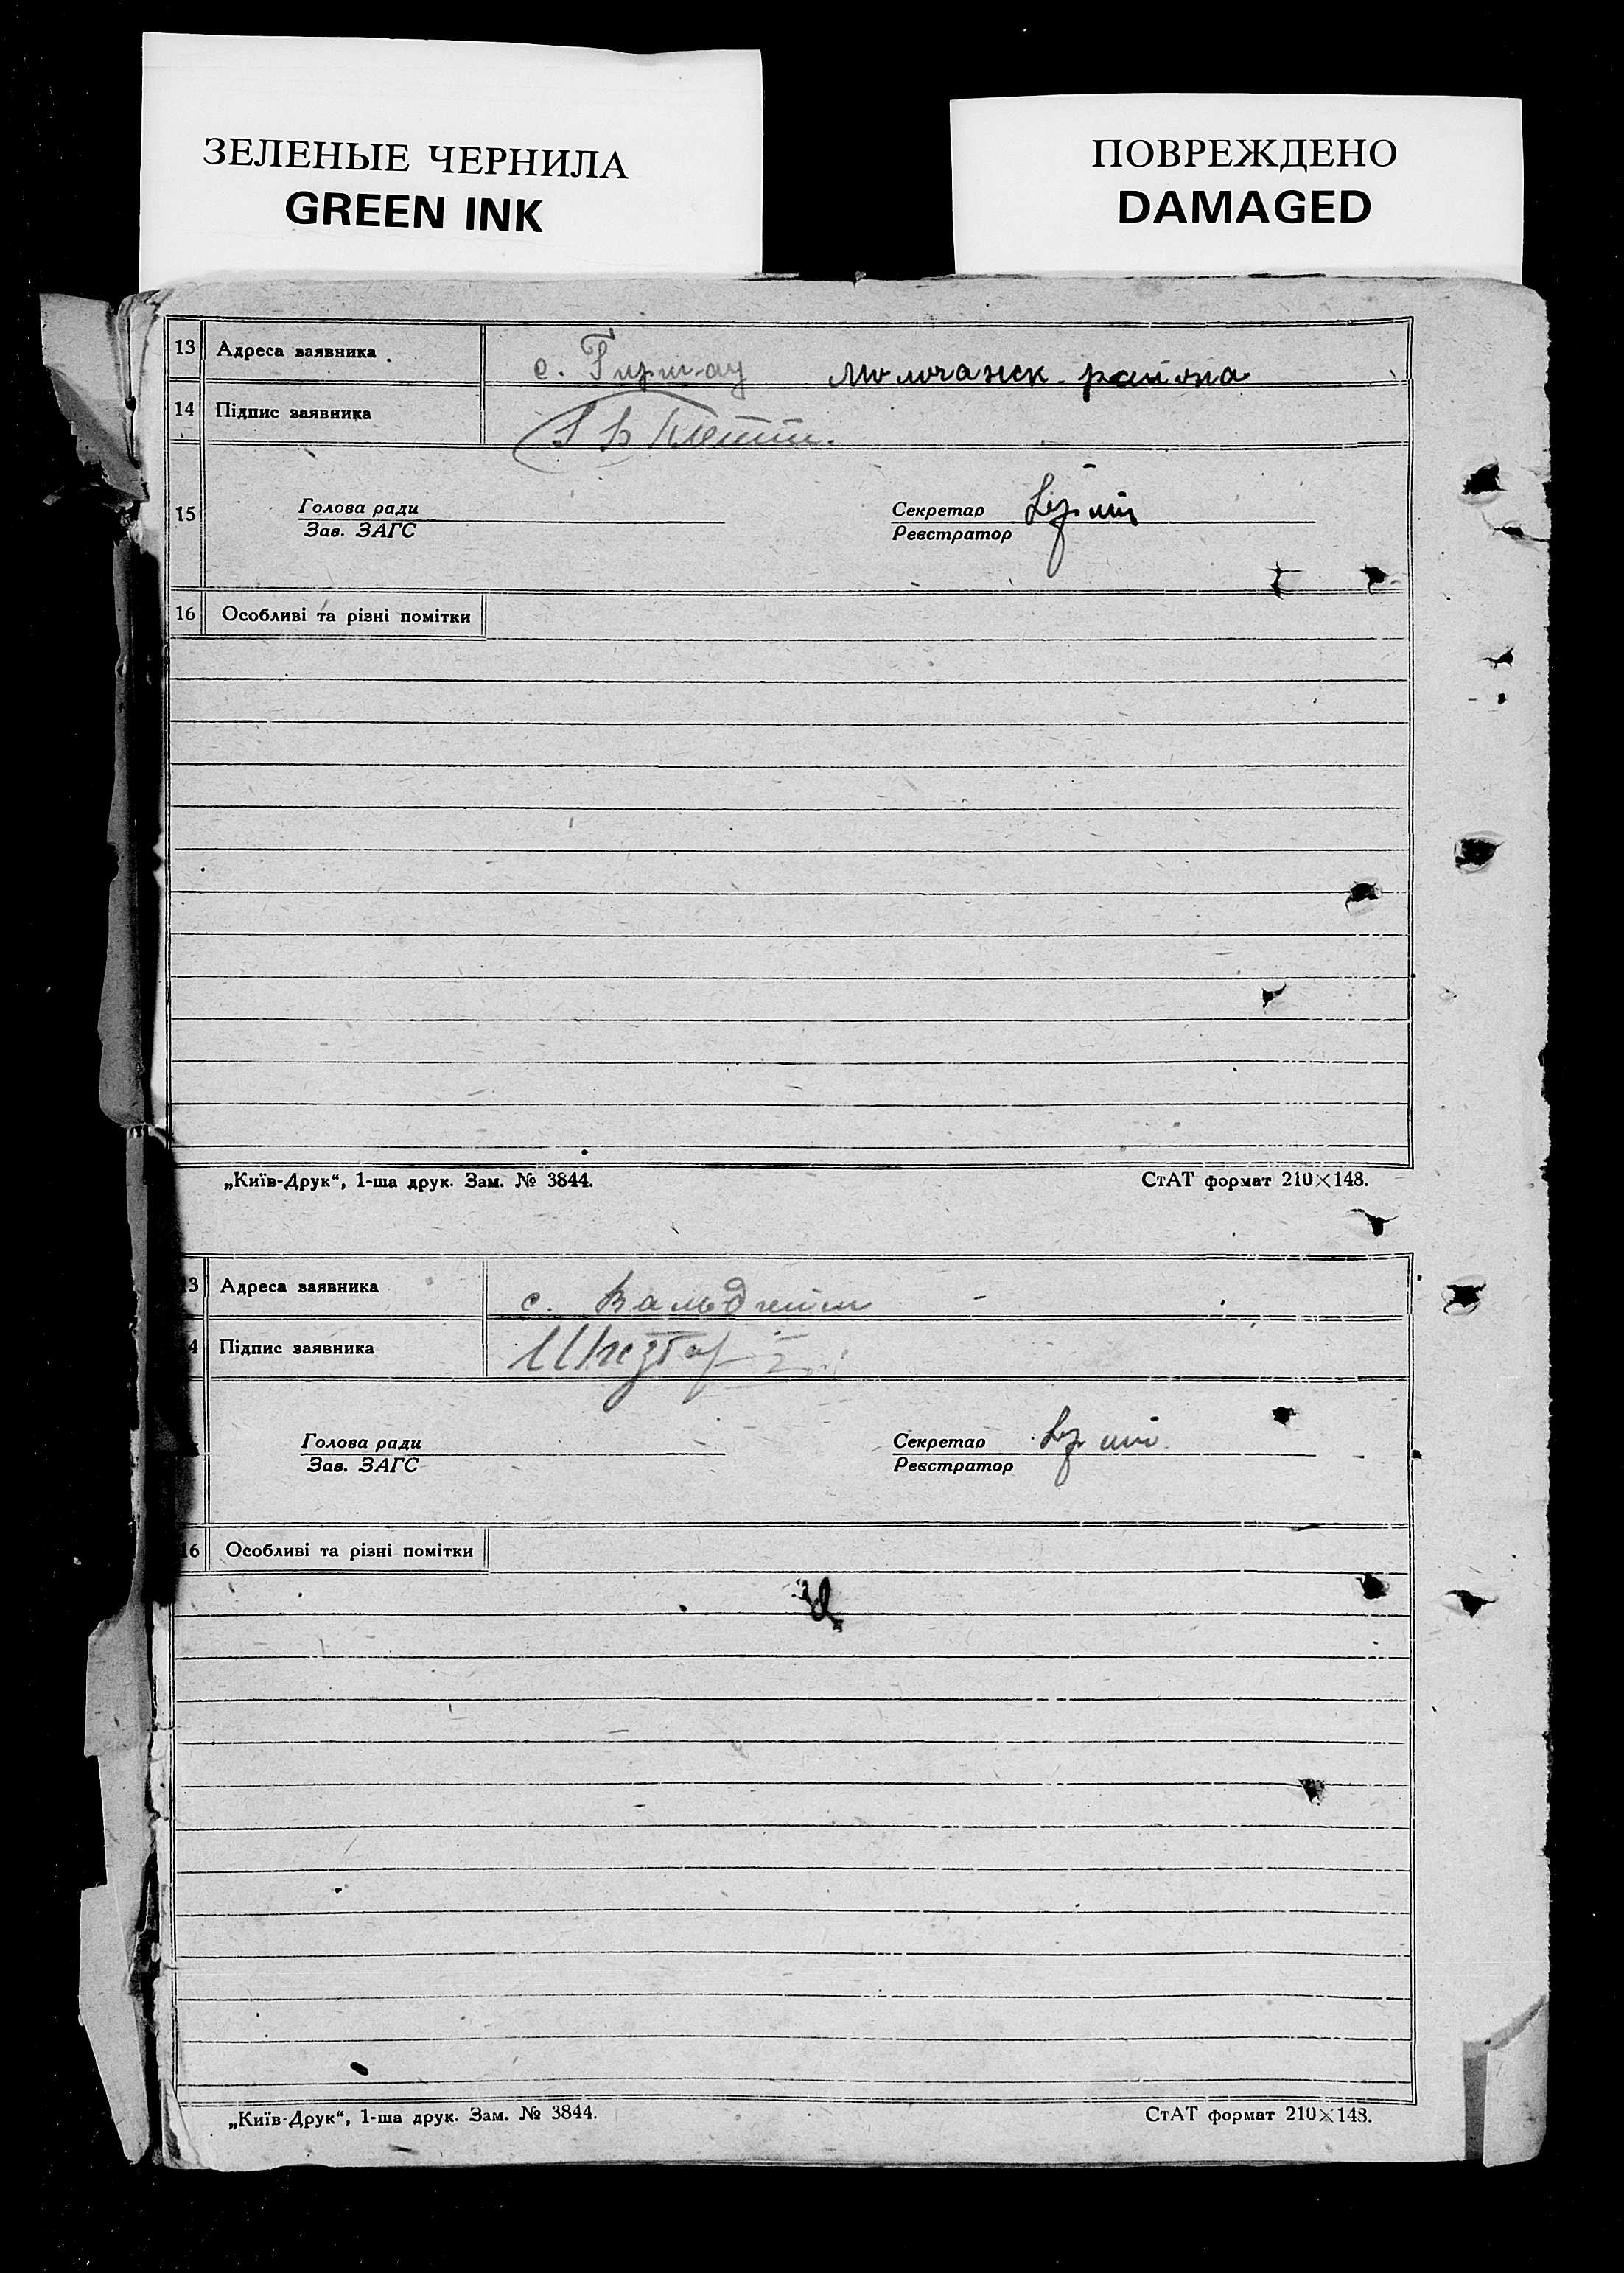 ЗЕЛЕНЫЕ ЧЕРНИЛА
GREEN INK
ПОВРЕЖДЕНО
DAMAGED
13 Адреса заявника с. Гиршау Молочанск. района
14 Підпис заявника
15 Голова ради Секретар
Зав. ЗАГС Реєстратор
16 Особливі та різні помітки
„Київ-Друк“, 1-ша друк. Зам. № 3844. СтАТ формат 210×148.
3 Адреса заявника с. Вальдгейм
4 Підпис заявника
Голова ради Секретар
Зав. ЗАГС Реєстратор
16 Особливі та різні помітки
„Київ-Друк“, 1-ша друк. Зам. № 3844. СтАТ формат 210×148.